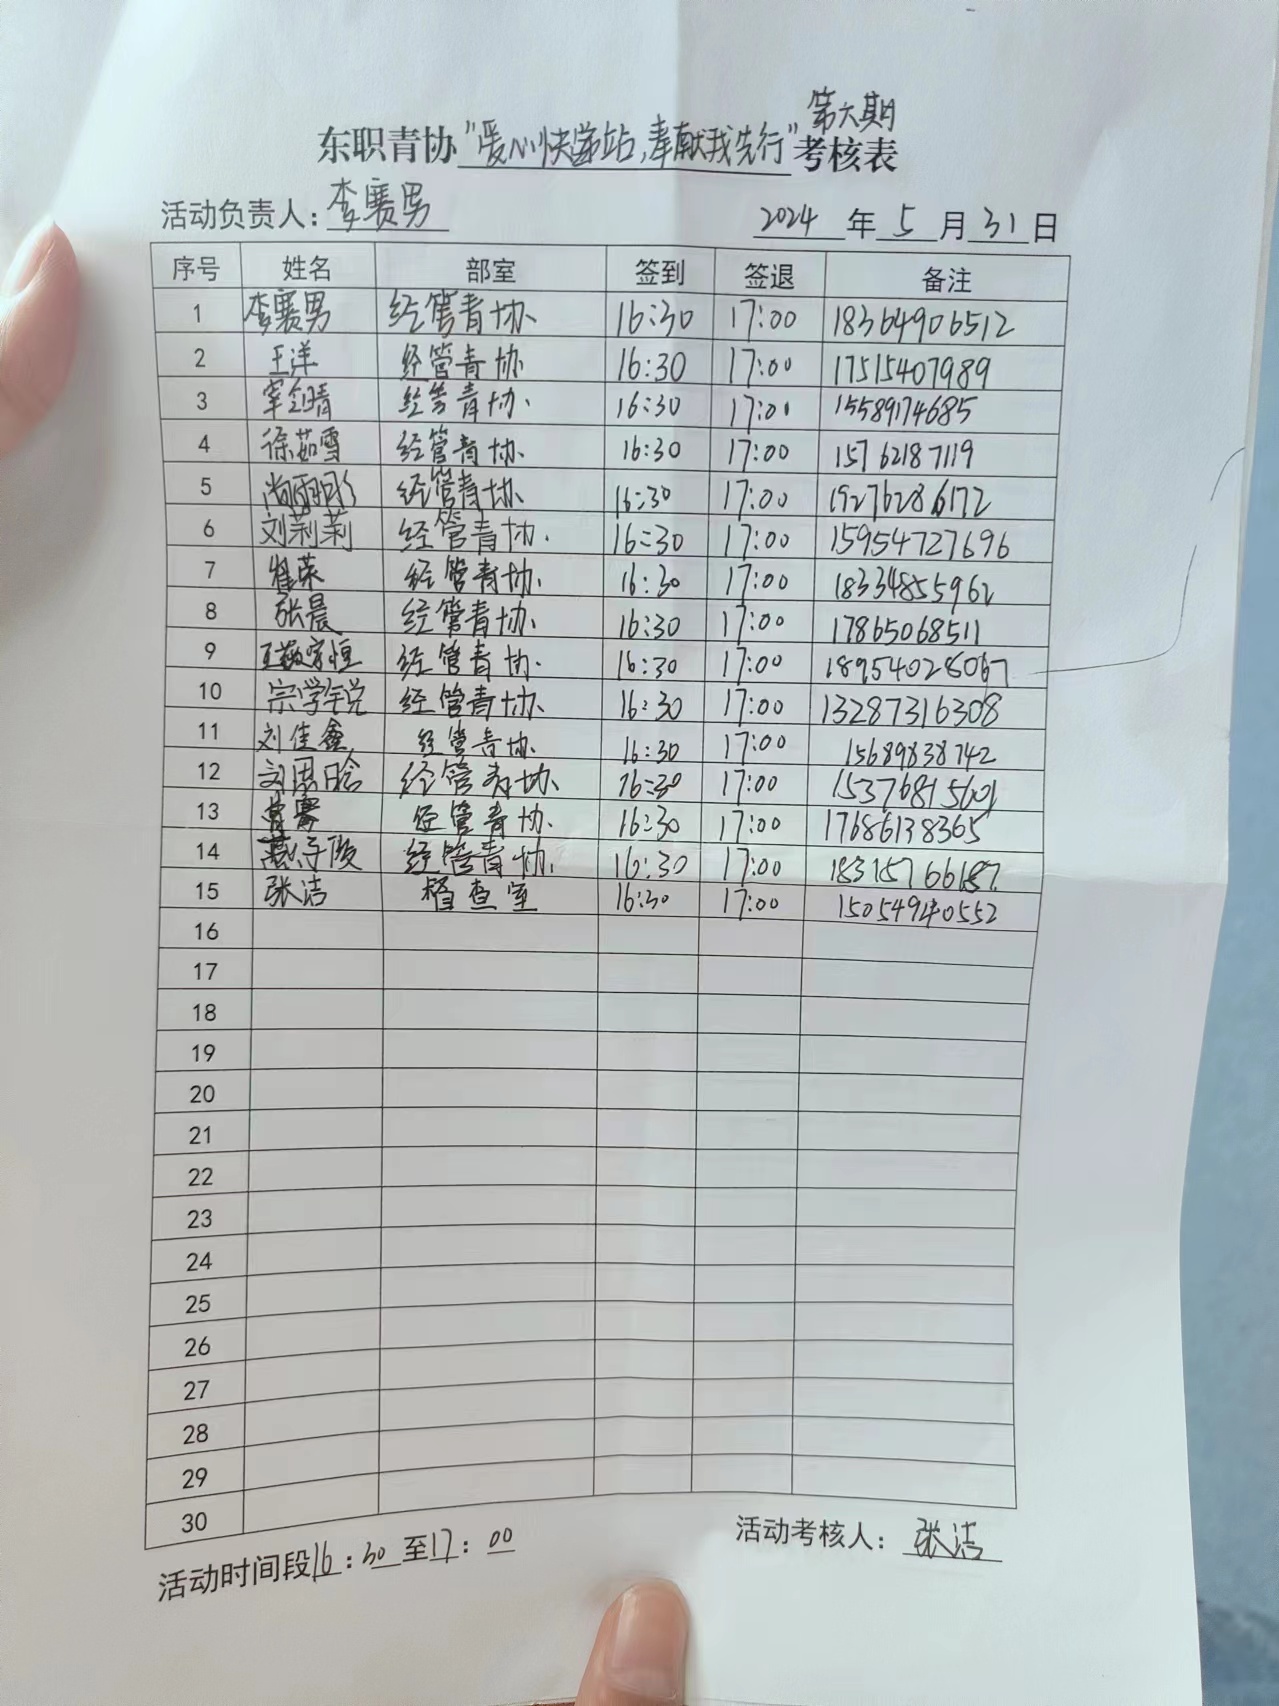 第六期
东职青协“爱心快递站,奉献我先行”考核表
活动负责人:李赛男 2024年5月31日
序号 姓名 部室 签到 签退 备注
1 李赛男 经管青协 16:30 17:00 18364906512
2 王洋 经管青协 16:30 17:00 17515407989
3 经管青协 16:30 17:00 15589174685
4 徐茹雪 经管青协 16:30 17:00 15762187119
5 经管青协 16:30 17:00 19276286172
6 刘莉莉 经管青协 16:30 17:00 15954727696
7 程荣 经管青协 16:30 17:00 18334855962
8 张晨 经管青协 16:30 17:00 17865068511
9 经管青协 16:30 17:00 18954028067
10 宗学锐 经管青协 16:30 17:00 13287316308
11 刘佳鑫 经管青协 16:30 17:00 15689838742
12 经管青协 16:30 17:00
13 经管青协 16:30 17:00 17686138365
14 经管青协 16:30 17:00 18315766187
15 张洁 督查室 16:30 17:00 15054940552
16
17
18
19
20
21
22
23
24
25
26
27
28
29
30
活动时间段16:30至17:00 活动考核人:张洁